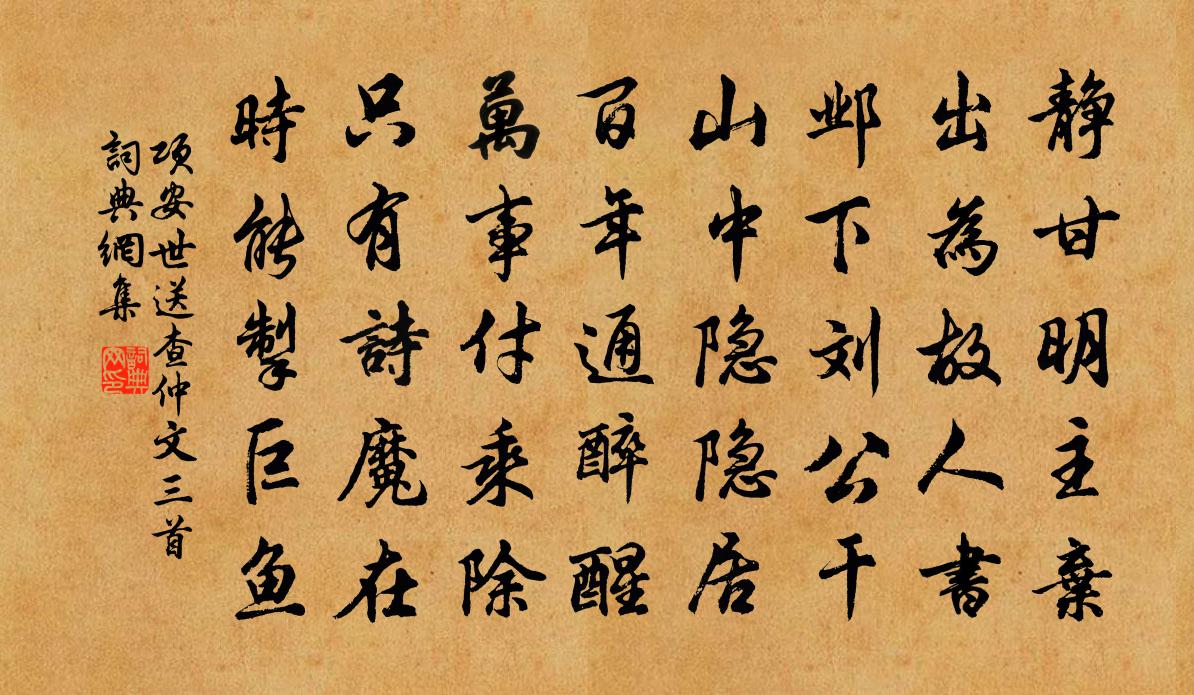 静甘明主棄
出為故人書
邺下刘公干
山中隐隐居
百年通醉醒
萬事付乘除
只有詩魔在
時能掣巨鱼
项安世送查仲文三首
詞典網集
詞典網印